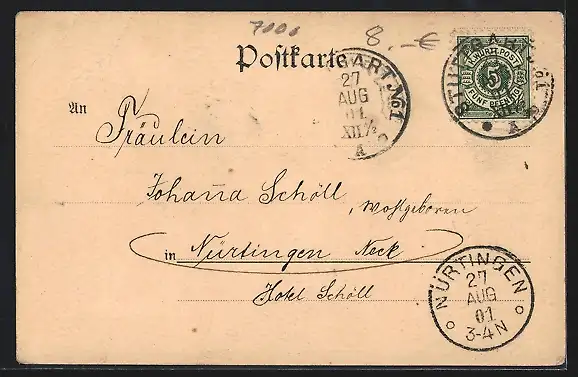 7000
8.–€
Postkarte
STUTTGART No 1
27
AUG
01
XII ½
A
K. WÜRTT. POST
5
FÜNF PFENNIG
STUTTGART No 1
A
An
Fräulein
Johanna Schöll
, Wohlgeboren
in Nürtingen Neck
Hotel Schöll
NÜRTINGEN
27
AUG
01
3-4N